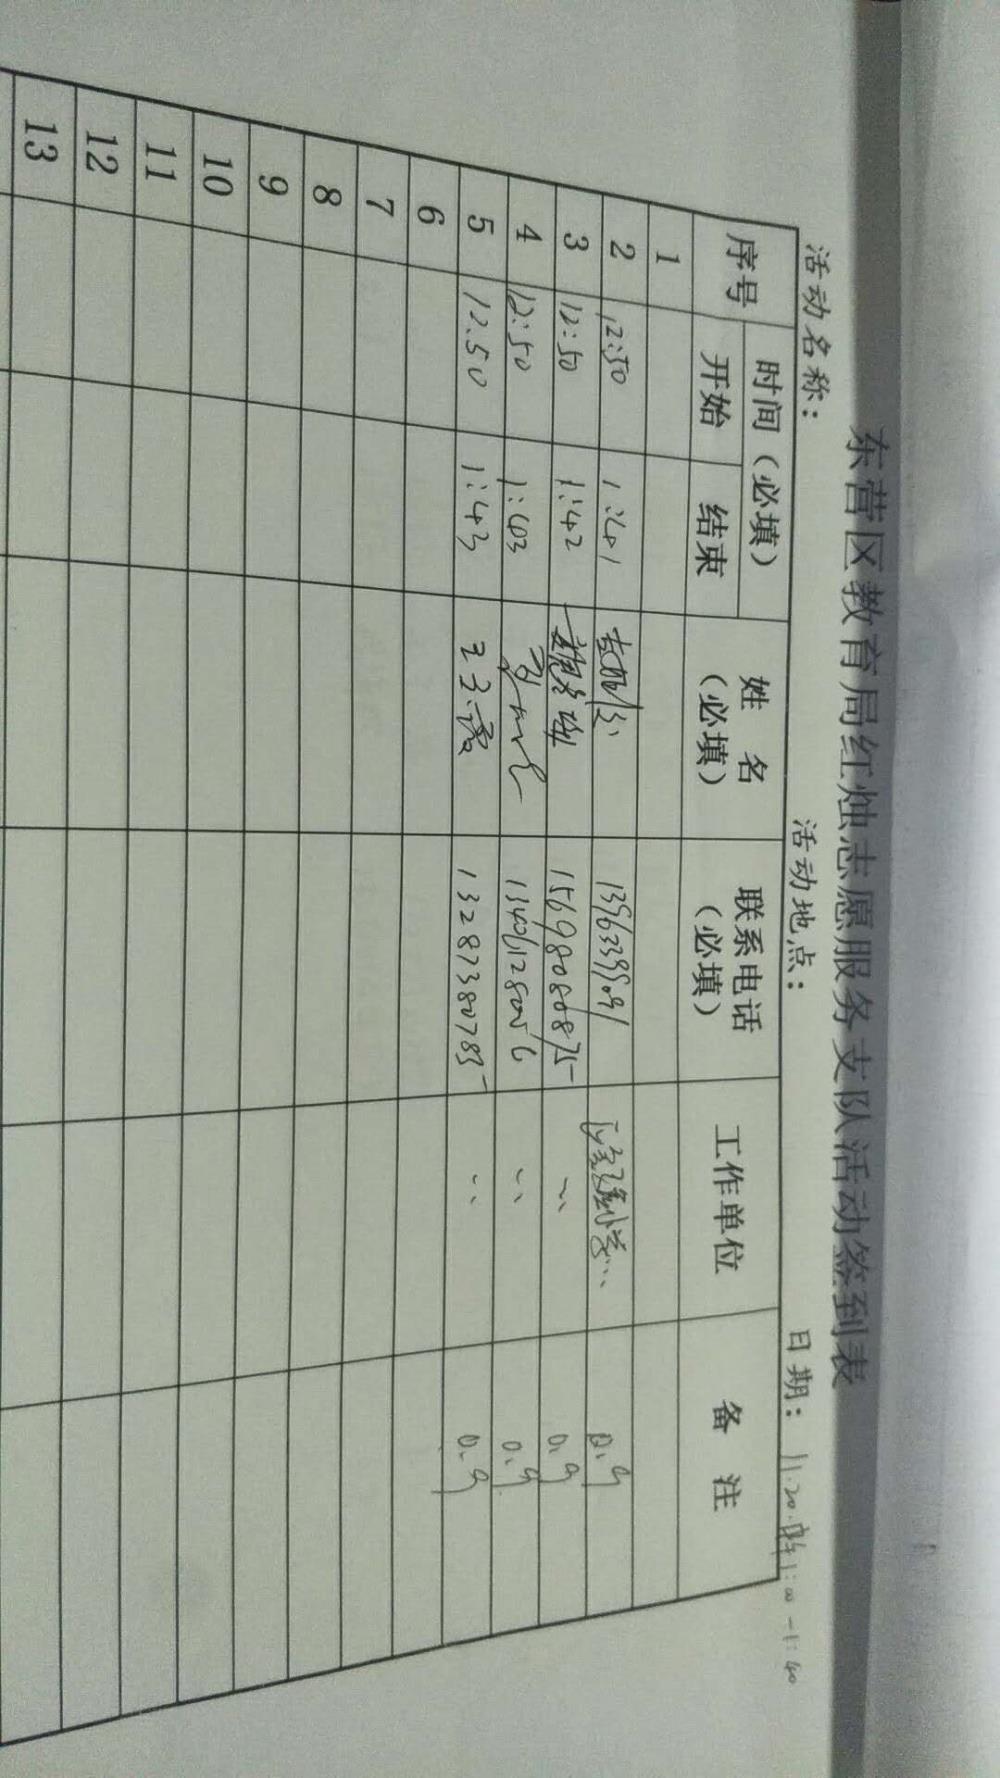 东营区教育局红烛志愿服务支队活动签到表
活动名称： 活动地点： 日期： 11.20. 1:00-1:40
序号 时间（必填） 姓名（必填） 联系电话（必填） 工作单位 备注
开始 结束
1
2 12:50 1:41 0.9
3 12:50 1:42 15698080875 0.9
4 12:50 1:43 0.9
5 12.50 1:43 13287380783 0.9
6
7
8
9
10
11
12
13